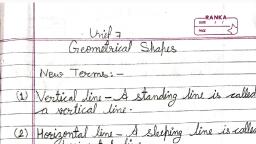 RANKA
DATE / /
PAGE
Unit 7
Geometrical Shapes
New Terms:-
(1) Vertical line - A standing line is called
a vertical line.
(2) Horizontal line - A sleeping line is called